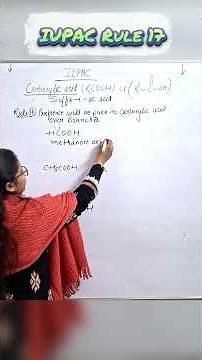 IUPAC RULE 17
IUPAC
Carboxylic acid (RCOOH) or (R-C-OH)
O
Suffix → oic acid
Preference will be given to Carboxylic acid
over branches
HCOOH
methanoic ac
CH₃COOH
H